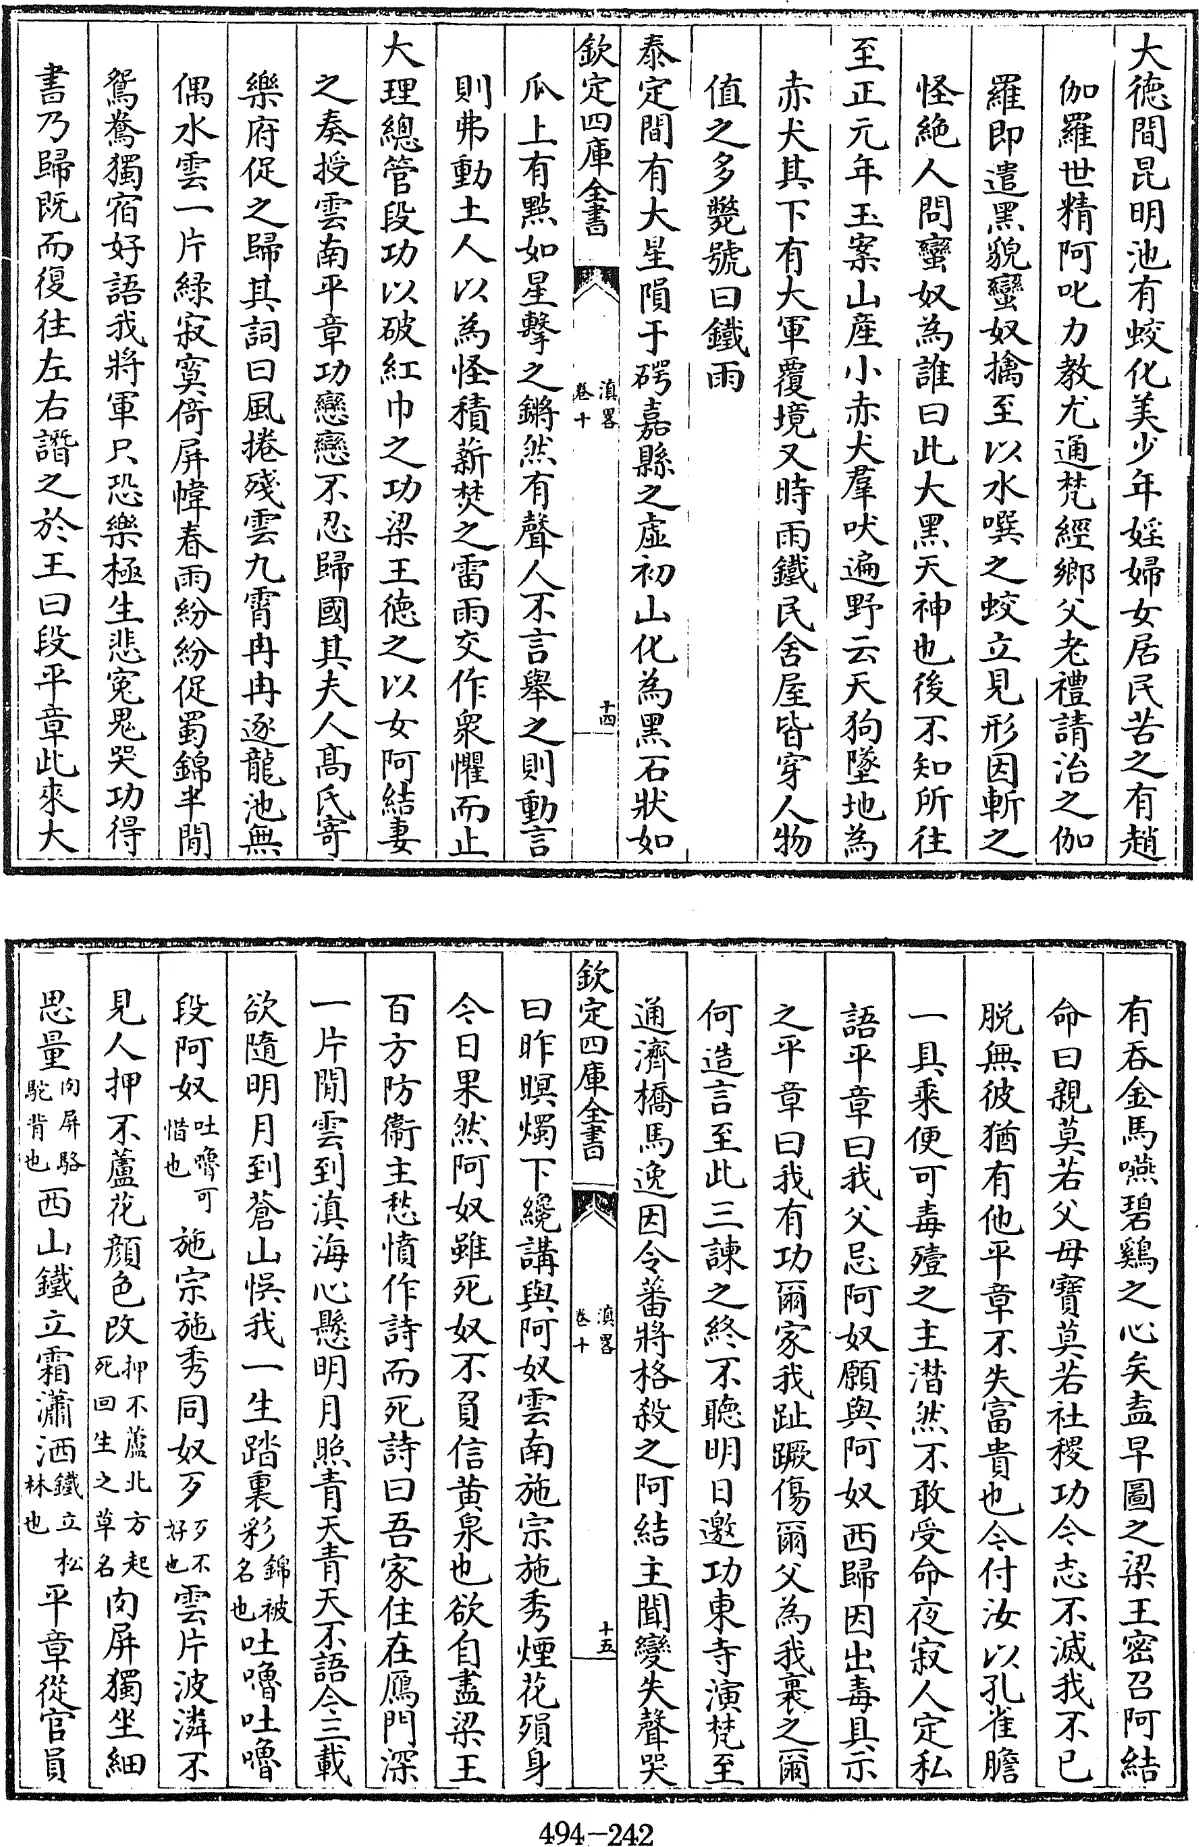 大德間昆明池有蛟化美少年婬婦女居民苦之有趙
伽羅世精阿叱力教尤通梵經鄉父老禮請治之伽
羅即遣黑貌蠻奴擒至以水噀之蛟立見形因斬之
怪絶人問蠻奴為誰曰此大黑天神也後不知所往
至正元年玉案山産小赤犬羣吠遍野云天狗墜地為
赤犬其下有大軍覆境又時雨鐵民舍屋皆穿人物
值之多斃號曰鐵雨
泰定間有大星隕于碍嘉縣之虛初山化為黑石狀如
欽定四庫全書
滇畧
卷十
十四
瓜上有點如星擊之鏘然有聲人不言舉之則動言
則弗動土人以為怪積薪焚之雷雨交作衆懼而止
大理總管段功以破紅巾之功梁王德之以女阿結妻
之奏授雲南平章功戀戀不忍歸國其夫人髙氏寄
樂府促之歸其詞曰風捲殘雲九霄冉冉逐龍池無
偶水雲一片緑寂寞倚屏幃春雨紛紛促蜀錦半間
鴛鴦獨宿好語我將軍只恐樂極生悲寃鬼哭功得
書乃歸既而復往左右譖之於王曰段平章此來大
有吞金馬嚥碧鷄之心矣盍早圖之梁王密召阿結
命曰親莫若父母寶莫若社稷功今志不滅我不已
脱無彼猶有他平章不失富貴也今付汝以孔雀膽
一具乘便可毒殪之主潸然不敢受命夜寂人定私
語平章曰我父忌阿奴願與阿奴西歸因出毒具示
之平章曰我有功爾家我趾蹶傷爾父為我裹之爾
何造言至此三諫之終不聽明日邀功東寺演梵至
通濟橋馬逸因令蕃將格殺之阿結主聞變失聲哭
欽定四庫全書
滇畧
卷十
十五
曰昨暝燭下纔講與阿奴雲南施宗施秀煙花殞身
今日果然阿奴雖死奴不負信黄泉也欲自盡梁王
百方防衞主愁憤作詩而死詩曰吾家住在鴈門深
一片閒雲到滇海心懸明月照青天青天不語今三載
欲隨明月到蒼山悞我一生踏裏彩錦被名也吐嚕吐嚕
段阿奴吐嚕可惜也施宗施秀同奴歹歹不好也雲片波潾不
見人押不蘆花顔色改押不蘆北方起死回生之草名肉屏獨坐細
思量肉屏駱駝背也西山鐵立霜瀟洒鐵立松林也平章從官員
494-242